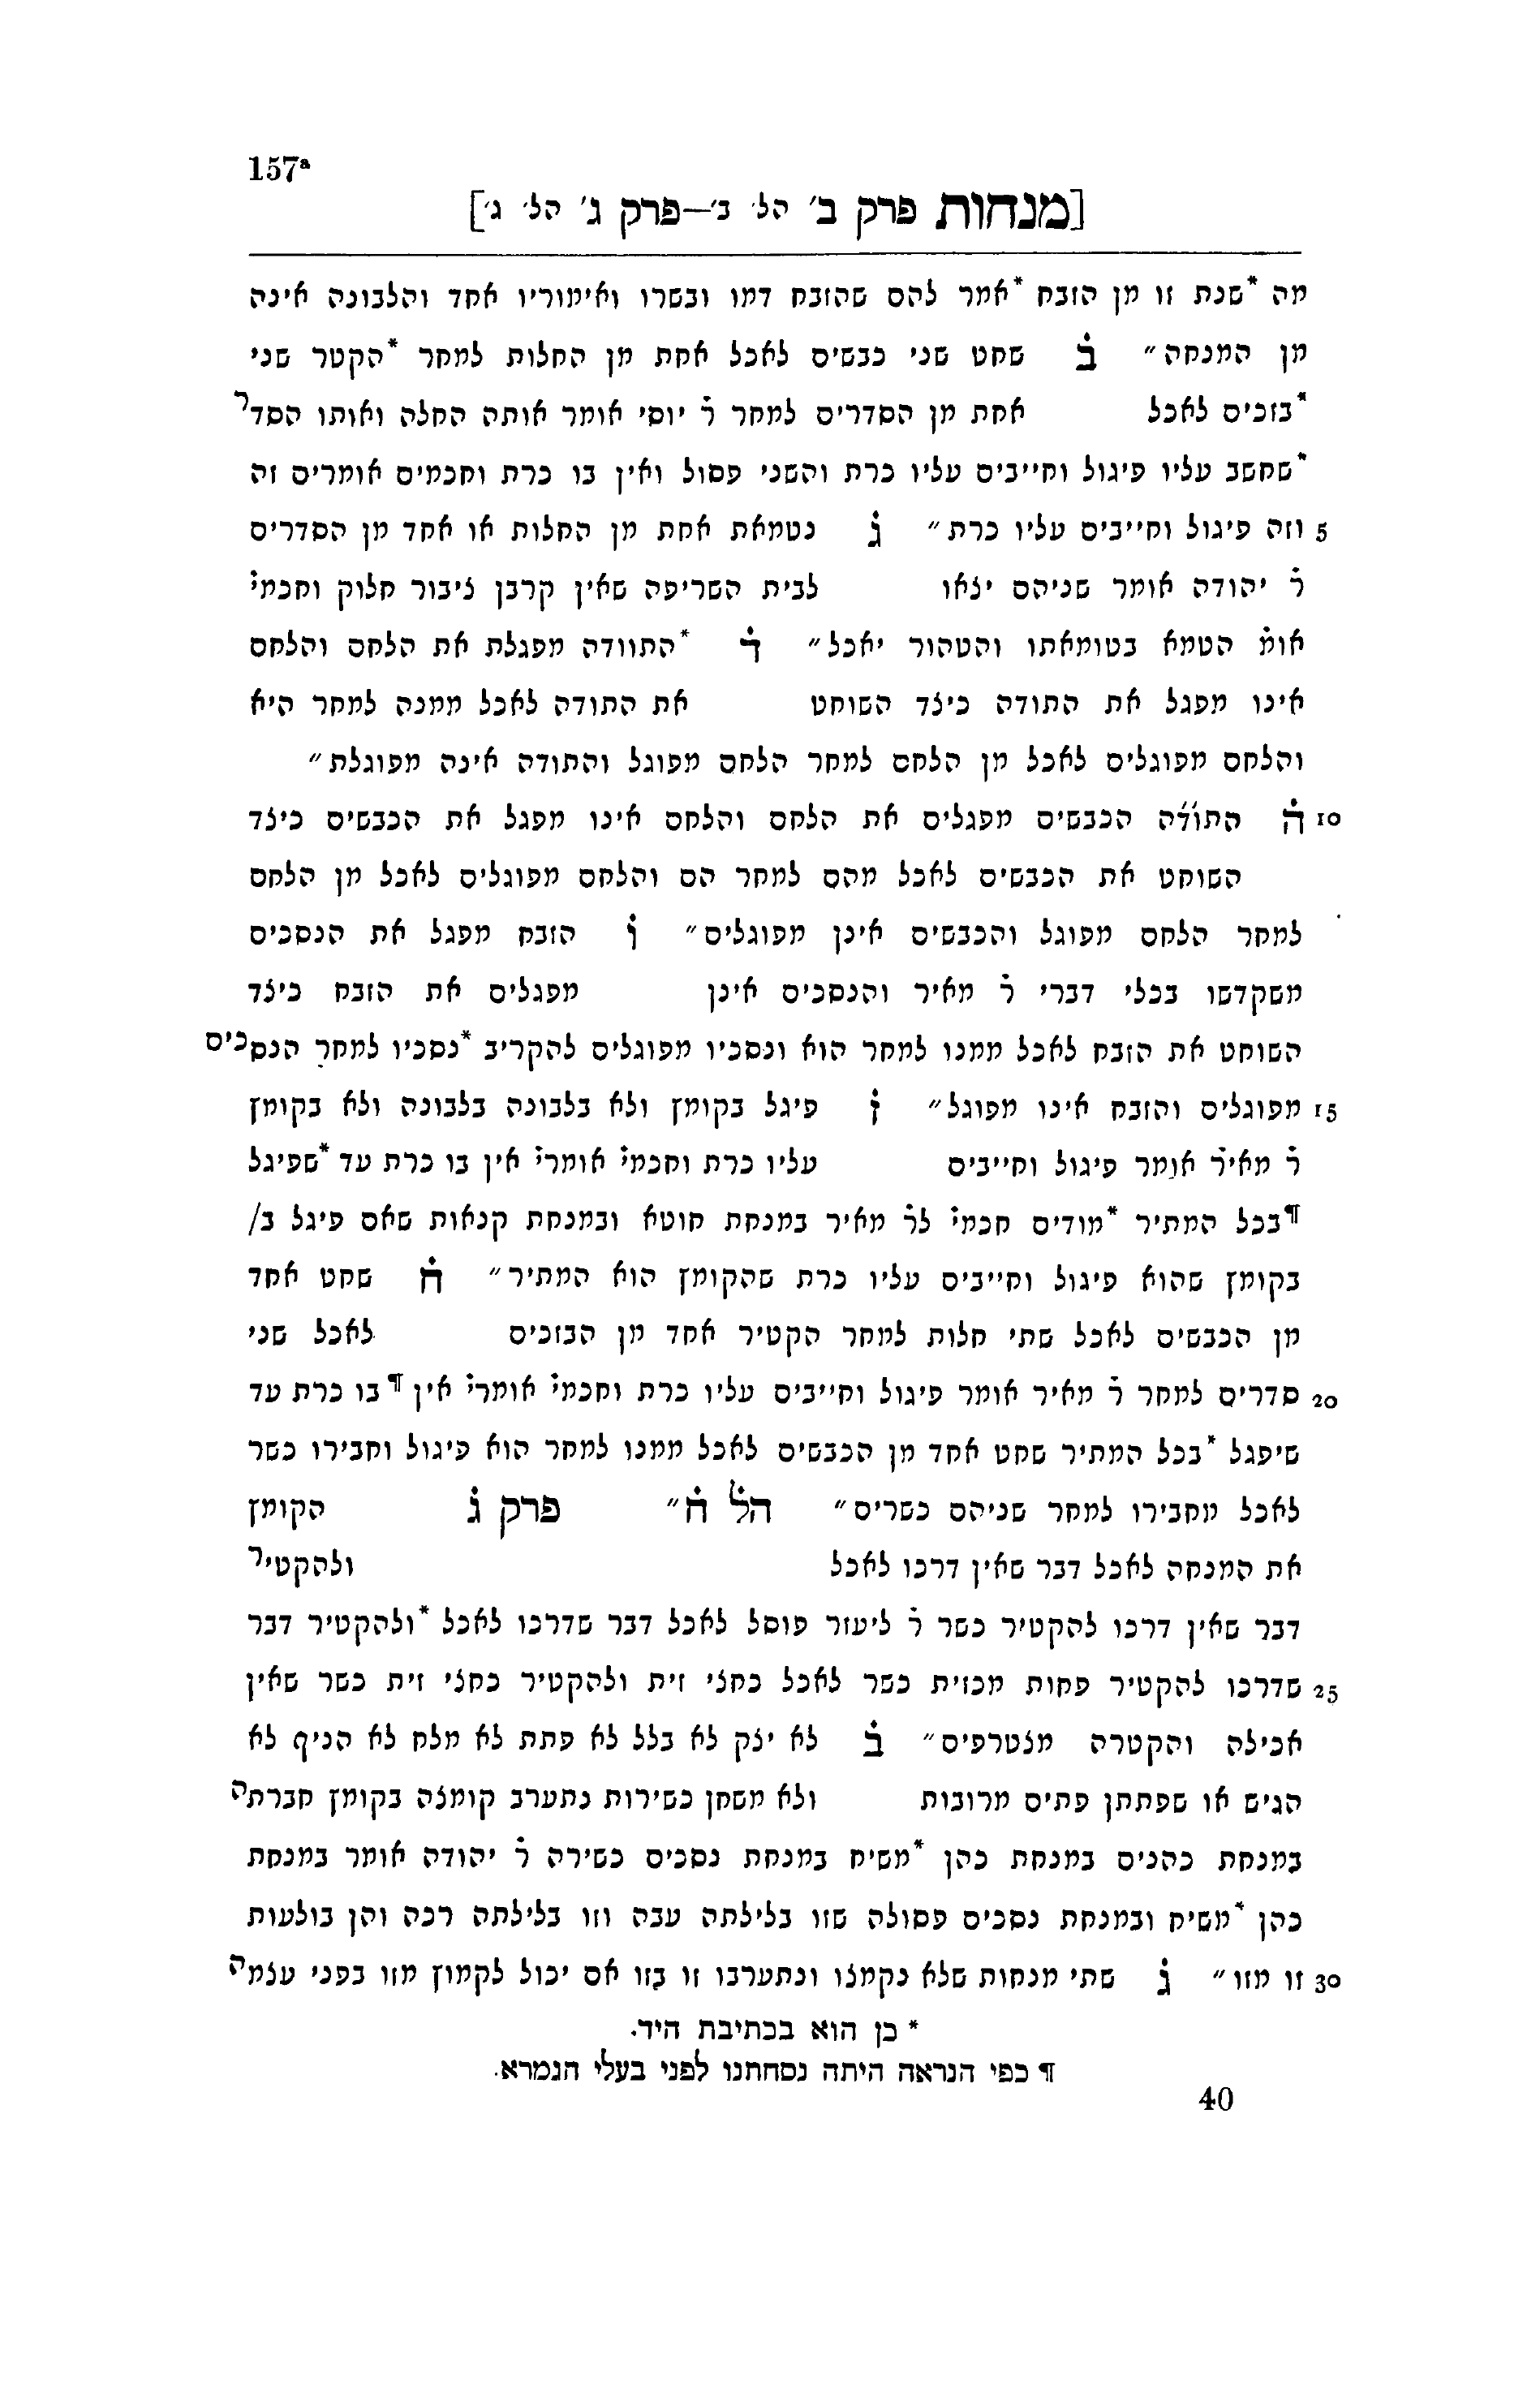 157ª
[מנחות פרק ב׳ הל׳ ב׳—פרק ג׳ הל׳ ג׳]
מה *שנת זו מן הזבח *אמר להם שהזבח דמו ובשרו ואימוריו אחד והלבונה אינה
מן המנחה״ ב̇ שחט שני כבשים לאכל אחת מן החלות למחר *הקטר שני
*בזכים לאכל אחת מן הסדרים למחר ר̇ יוסי אומר אותה החלה ואותו הסדר
*שחשב עליו פיגול וחייבים עליו כרת והשני פסול ואין בו כרת וחכמים אומרים זה
5 וזה פיגול וחייבים עליו כרת״ ג̇ נטמאת אחת מן החלות או אחד מן הסדרים
ר̇ יהודה אומר שניהם יצאו לבית השריפה שאין קרבן ציבור חלוק וחכמי̇
אומ̇ הטמא בטומאתו והטהור יאכל״ ד̇ *התוודה מפגלת את הלחם והלחם
אינו מפגל את התודה כיצד השוחט את התודה לאכל ממנה למחר היא
והלחם מפוגלים לאכל מן הלחם למחר הלחם מפוגל והתודה אינה מפוגלת״
10 ה̇ התו̇ד̇ה הכבשים מפגלים את הלחם והלחם אינו מפגל את הכבשים כיצד
השוחט את הכבשים לאכל מהם למחר הם והלחם מפוגלים לאכל מן הלחם
למחר הלחם מפוגל והכבשים אינן מפוגלים״ ו̇ הזבח מפגל את הנסכים
משקדשו בכלי דברי ר̇ מאיר והנסכים אינן מפגלים את הזבח כיצד
השוחט את הזבח לאכל ממנו למחר הוא ונסכיו מפוגלים להקריב *נסכיו למחר הנסכים
15 מפוגלים והזבח אינו מפוגל״ ז̇ פיגל בקומץ ולא בלבונה בלבונה ולא בקומץ
ר̇ מאיר̇ אומר פיגול וחייבים עליו כרת וחכמי̇ אומרי̇ אין בו כרת עד *שפיגל
¶בכל המתיר *מודים חכמי̇ לר̇ מאיר במנחת חוטא ובמנחת קנאות שאם פיגל ב/
בקומץ שהוא פיגול וחייבים עליו כרת שהקומץ הוא המתיר״ ח̇ שחט אחד
מן הכבשים לאכל שתי חלות למחר הקטיר אחד מן הבזכים לאכל שני
20 סדרים למחר ר̇ מאיר אומר פיגול וחייבים עליו כרת וחכמי̇ אומרי̇ אין ¶בו כרת עד
שיפגל *בכל המתיר שחט אחד מן הכבשים לאכל ממנו למחר הוא פיגול וחבירו כשר
לאכל מחבירו למחר שניהם כשרים״ הל̇ ח̇״ פרק ג̇ הקומץ
את המנחה לאכל דבר שאין דרכו לאכל ולהקטיר
דבר שאין דרכו להקטיר כשר ר̇ ליעזר פוסל לאכל דבר שדרכו לאכל *ולהקטיר דבר
25 שדרכו להקטיר פחות מכזית כשר לאכל כחצי זית ולהקטיר כחצי זית כשר שאין
אכילה והקטרה מצטרפים״ ב̇ לא יצק לא בלל לא פתת לא מלח לא הניף לא
הגיש או שפתתן פתים מרובות ולא משחן כשירות נתערב קומצה בקומץ חברתה
במנחת כהנים במנחת כהן *משיח במנחת נסכים כשירה ר̇ יהודה אומר במנחת
כהן *משיח ובמנחת נסכים פסולה שזו בלילתה עבה וזו בלילתה רכה והן בולעות
30 זו מזו״ ג̇ שתי מנחות שלא נקמצו ונתערבו זו בזו אם יכול לקמוץ מזו בפני עצמה
* כן הוא בכתיבת היד.
¶ כפי הנראה היתה נסחתנו לפני בעלי הגמרא.
40